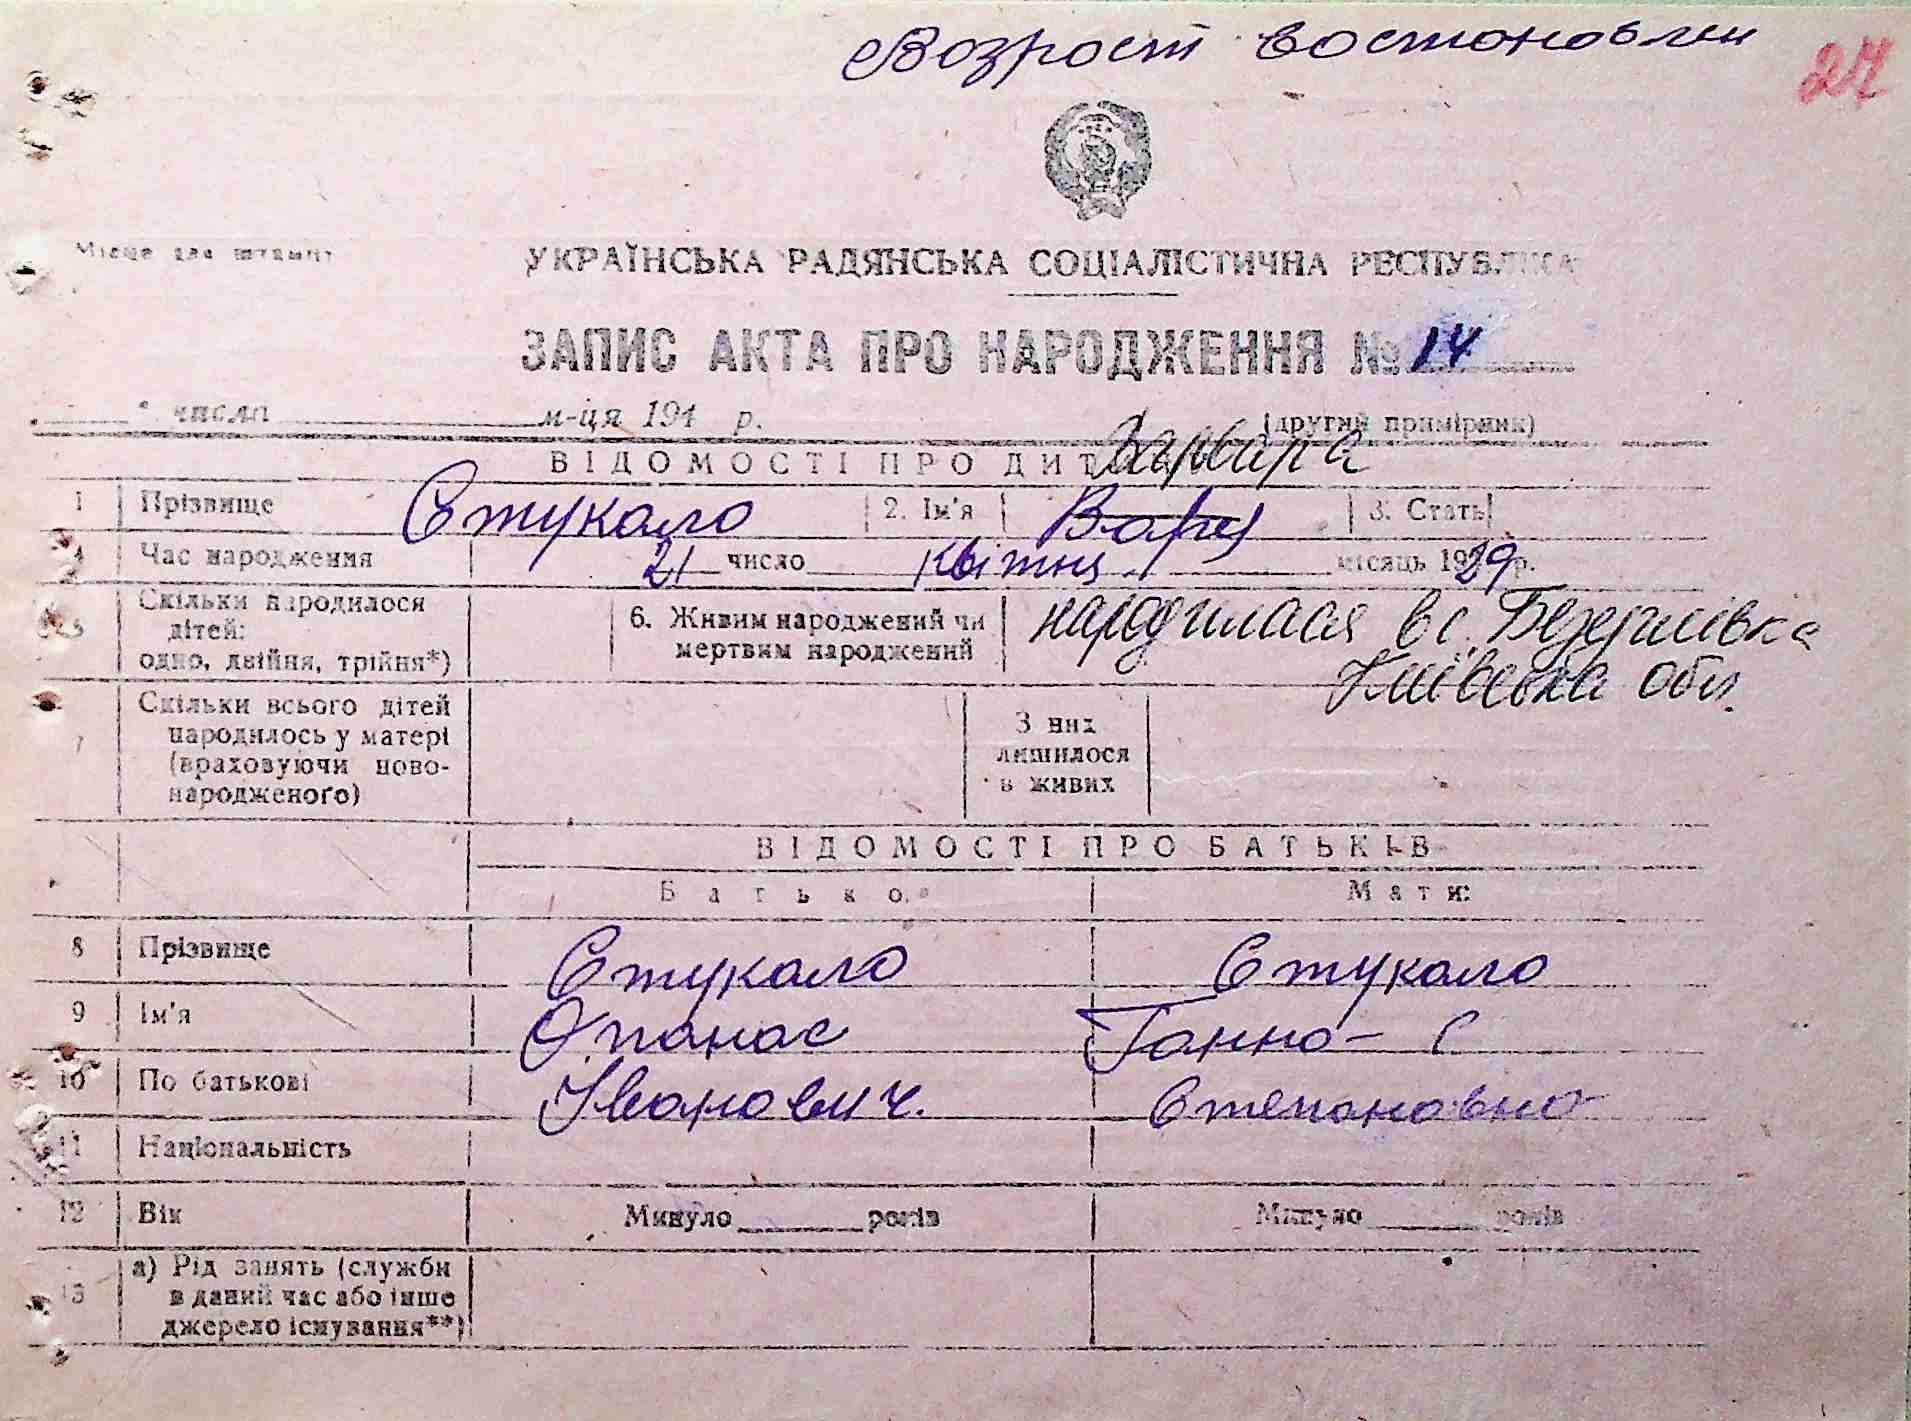 Возраст востановлен
27
Місце для штампу
УКРАЇНСЬКА РАДЯНСЬКА СОЦІАЛІСТИЧНА РЕСПУБЛІКА
ЗАПИС АКТА ПРО НАРОДЖЕННЯ № 14
" числа м-ця 194 р. (другий примірник)
Варвара
ВІДОМОСТІ ПРО ДИТ
1 Прізвище Стукало 2. Ім'я Варя 3. Стать
4 Час народження 21 число квітня місяць 1929 р.
5 Скільки народилося дітей: одно, двійня, трійня*) 6. Живим народжений чи мертвим народжений народилася в с. Безуглівка
Київська обл.
7 Скільки всього дітей народилось у матері (враховуючи новонародженого) З них лишилося в живих
ВІДОМОСТІ ПРО БАТЬКІВ
Батько: Мати:
8 Прізвище Стукало Стукало
9 Ім'я Опанас Ганна С
10 По батькові Іванович. Степановна
11 Національність
12 Вік Минуло років Минуло років
13 а) Рід занять (служби
в даний час або інше
джерело існування**)